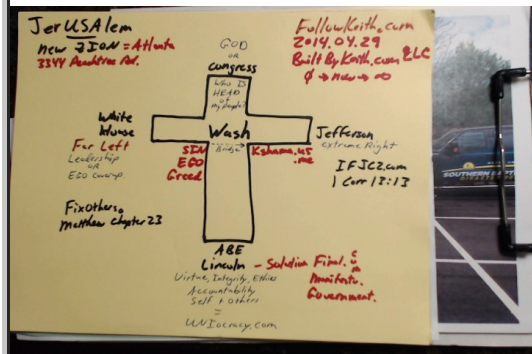 JerUSAlem
new ZION = Atlanta
3344 Peachtree Rd.
FollowKeith.com
2014.04.29
Built By Keith.com LLC
0 → new → ∞
GOD
OR
Congress
Who IS
HEAD
of
my People?
White
House
Far Left
Leadership
OR
EGO coverup.
Wash
Bridge
SIN
EGO
Greed
Kshama.us
.me
Jefferson
Extreme Right
IFJC2.com
1 Corr 13:13
FixOthers.
Matthew Chapter 23
ABE
Lincoln - Solution Final.com
Manifesto.
Government.
Virtue, Integrity, Ethics
Accountability
Self + Others
=
UVIocracy.com
SOUTHERN